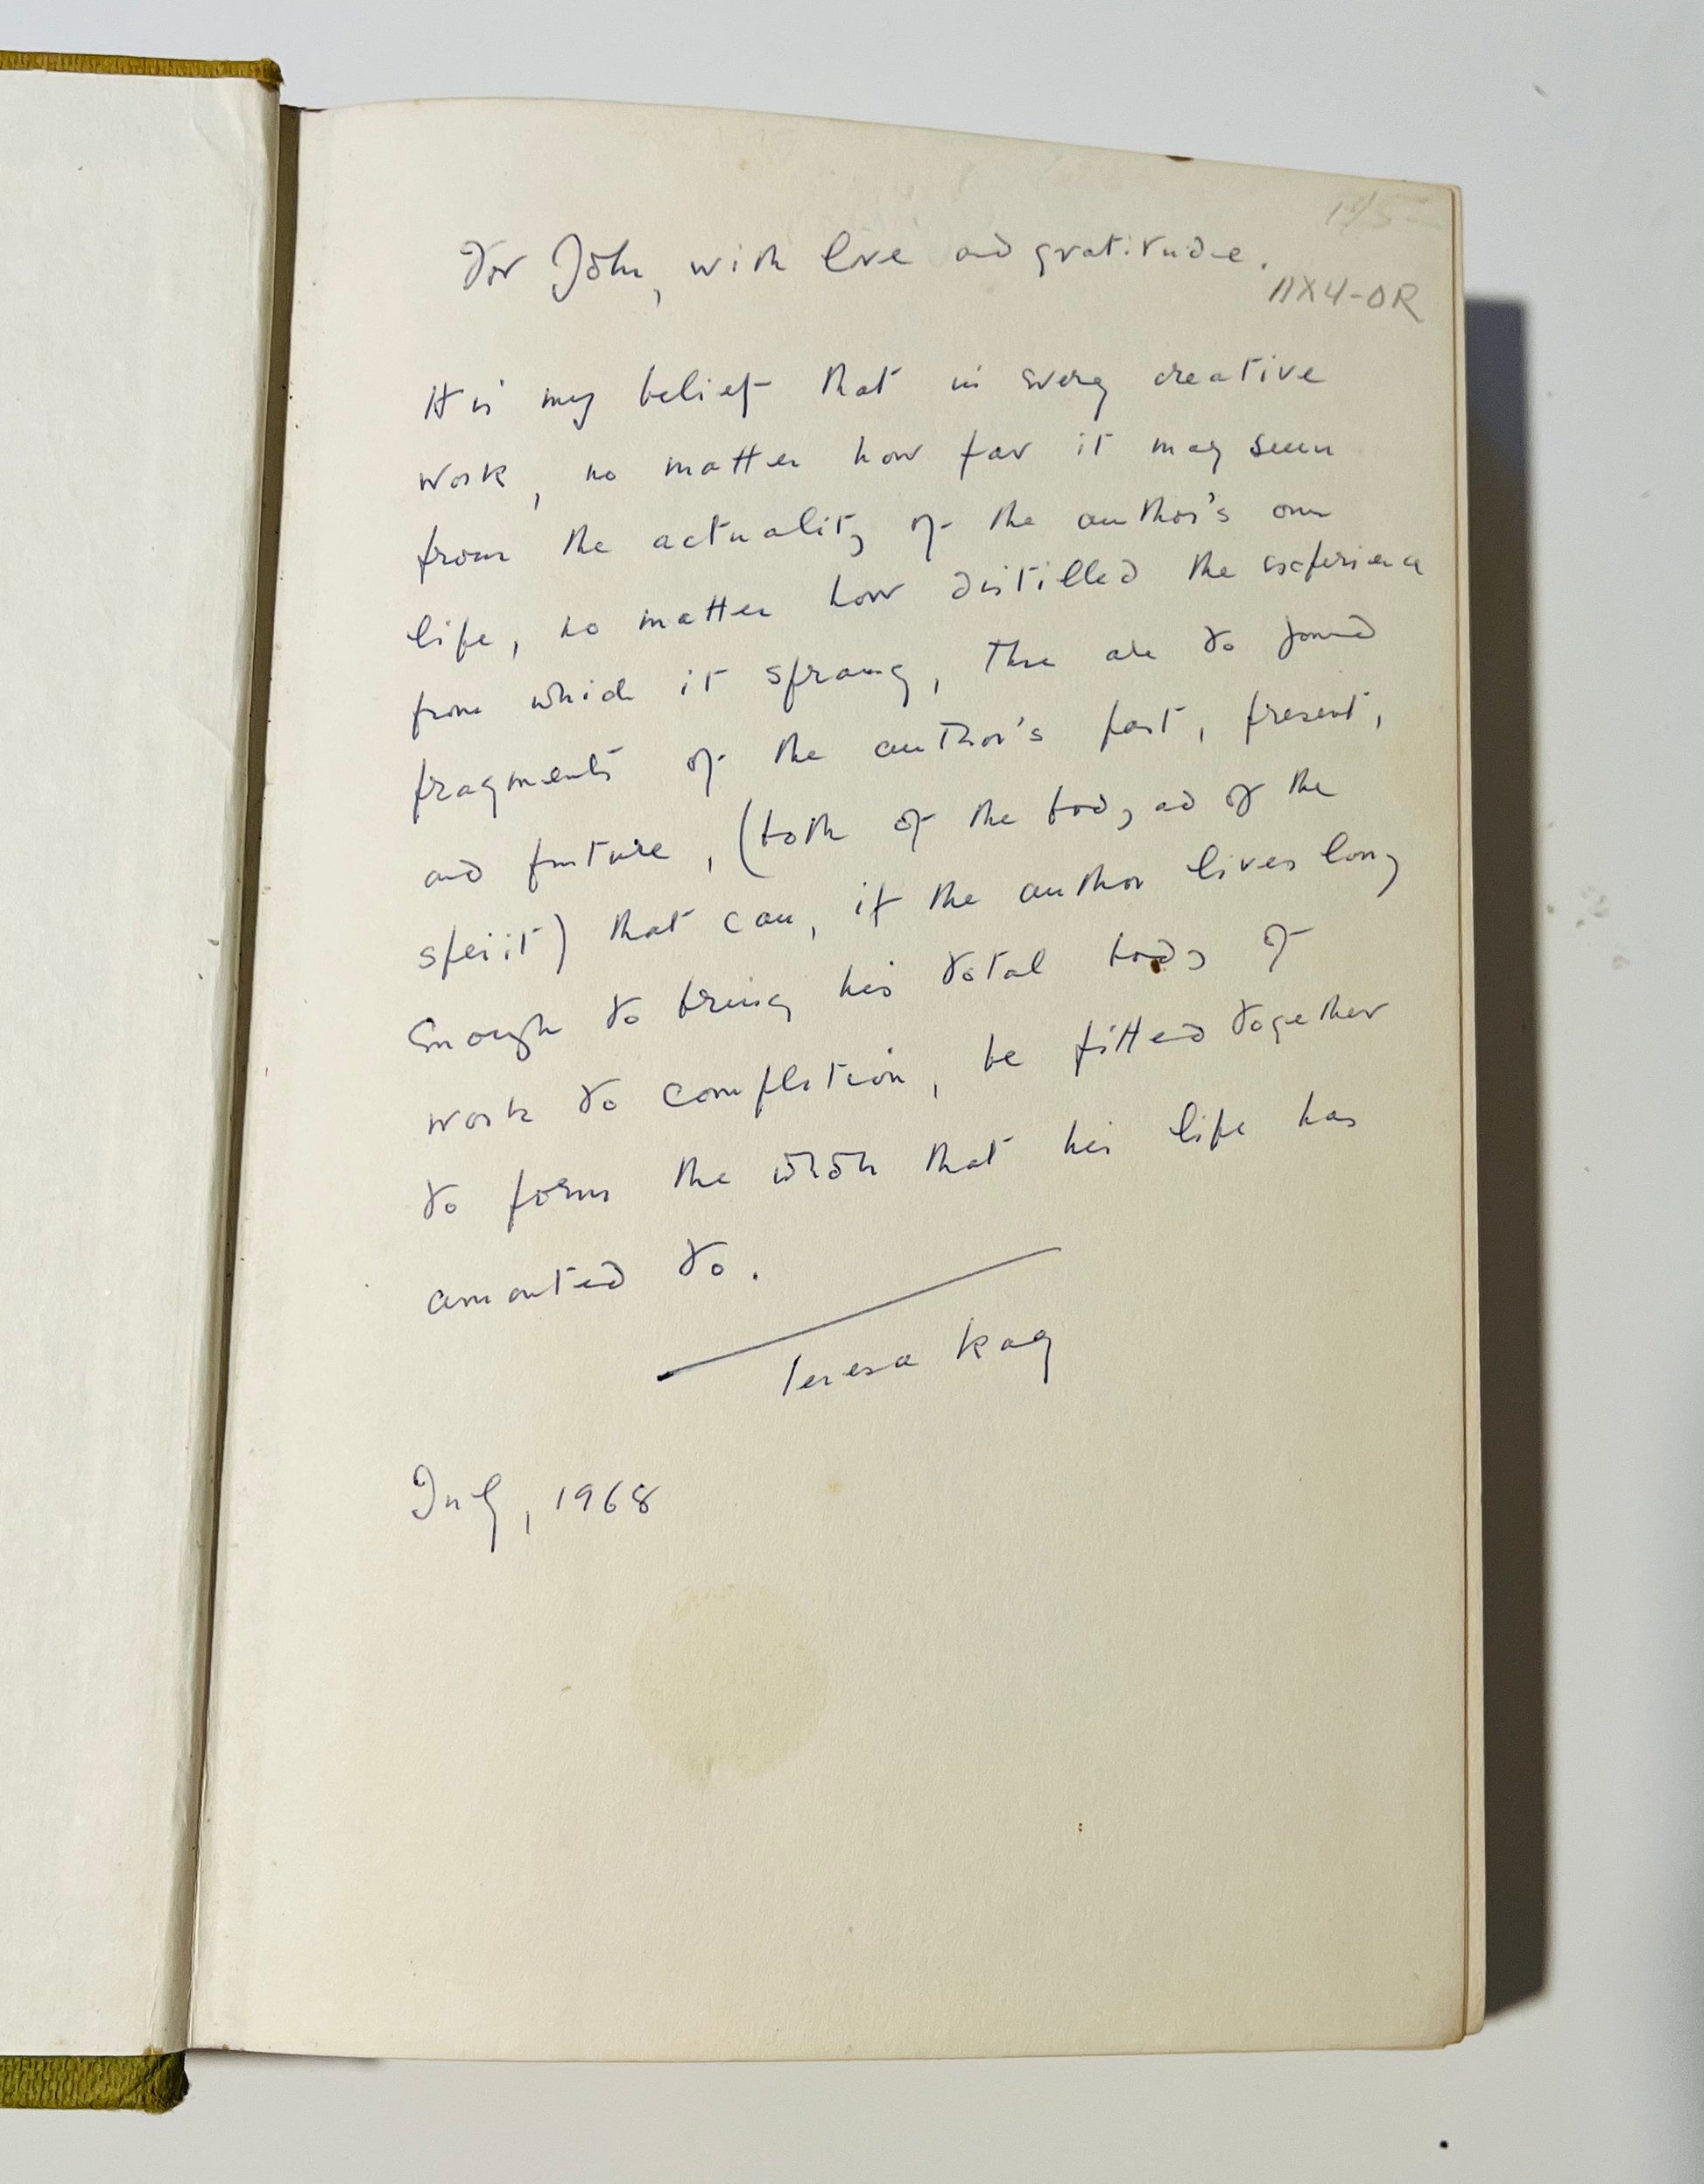 For John, with love and gratitude.
11X4-OR
It is my belief that in every creative
work, no matter how far it may seem
from the actuality of the author's own
life, no matter how distilled the experience
from which it sprang, there are to found
fragments of the author's past, present,
and future, (both of the body and of the
spirit) that can, if the author lives long
enough to bring his total body of
work to completion, be fitted together
to form the whole that his life has
amounted to.
Teresa Kay
July, 1968